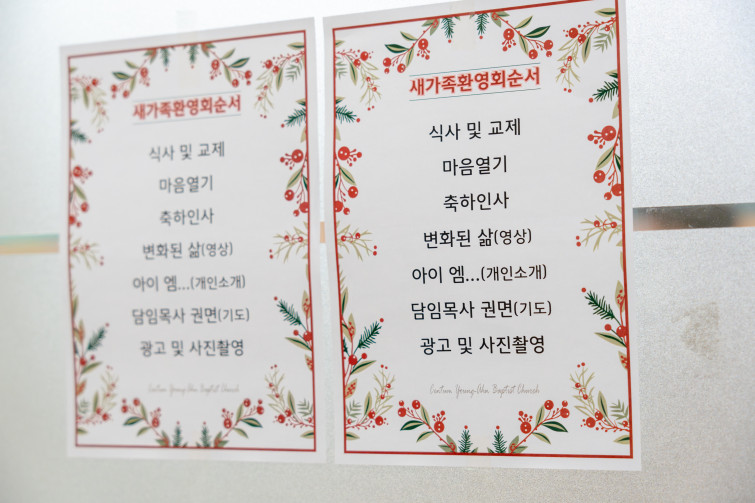 새가족환영회순서
식사 및 교제
마음열기
축하인사
변화된 삶(영상)
아이 엠...(개인소개)
담임목사 권면(기도)
광고 및 사진촬영
Centum Young-Ahn Baptist Church
새가족환영회순서
식사 및 교제
마음열기
축하인사
변화된 삶(영상)
아이 엠...(개인소개)
담임목사 권면(기도)
광고 및 사진촬영
Centum Young-Ahn Baptist Church